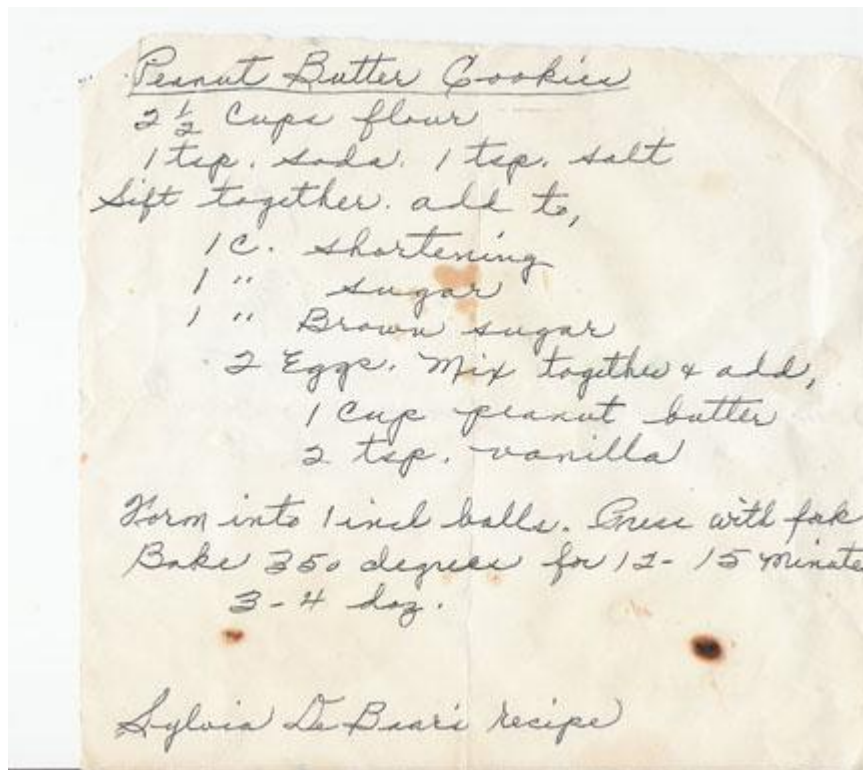 Peanut Butter Cookies
2 1/2 Cups flour
1 tsp. soda. 1 tsp. salt
Sift together. add to,
1 C. shortening
1 " sugar
1 " Brown sugar
2 Eggs. Mix together & add,
1 Cup peanut butter
2 tsp. vanilla
Form into 1 inch balls. Press with fork
Bake 350 degrees for 12-15 minute
3-4 doz.
Sylvia De Baar's recipe